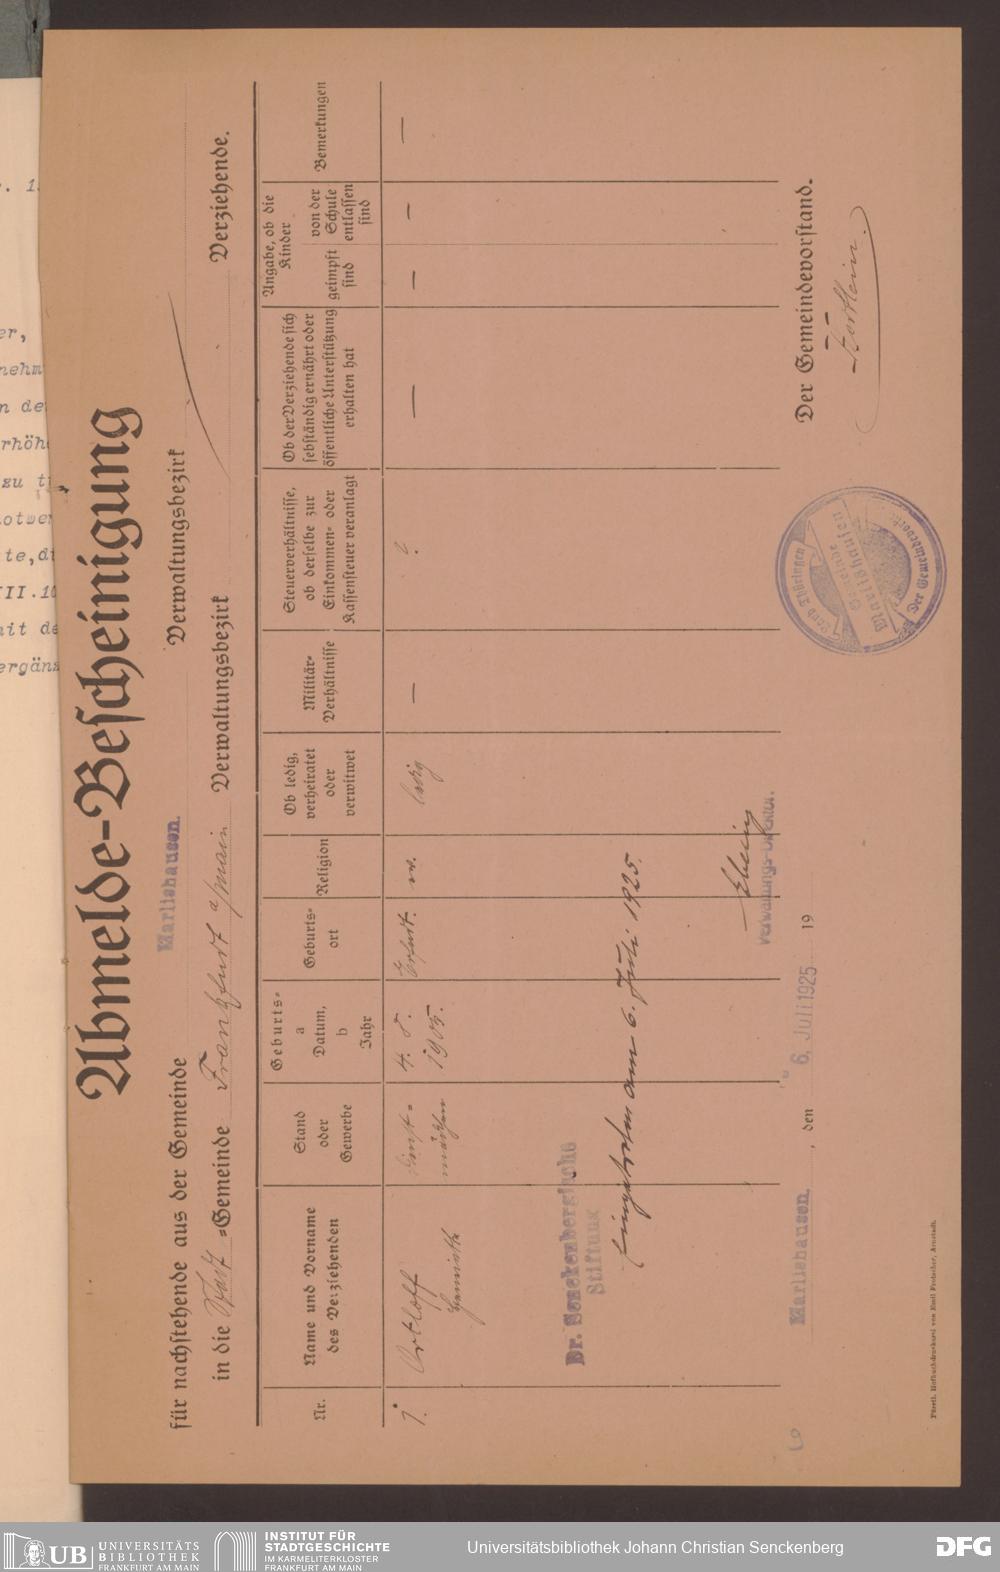 Abmelde-Bescheinigung
für nachstehende aus der Gemeinde Marlishausen. Verwaltungsbezirk
in die Stadt =Gemeinde Frankfurt a/main Verwaltungsbezirk Verziehende.
Nr.
Name und Vorname
des Verziehenden
Stand
oder
Gewerbe
Geburts-
a
Datum,
b
Jahr
Geburts-
ort
Religion
Ob ledig,
verheiratet
oder
verwitwet
Militär-
Verhältnisse
Steuerverhältnisse,
ob derselbe zur
Einkommen- oder
Klassensteuer veranlagt
Ob der Verziehende sich
selbständig ernährt oder
öffentliche Unterstützung
erhalten hat
Angabe, ob die
Kinder
geimpft
sind
von der
Schule
entlassen
sind
Bemerkungen
1.
Ortloff
Dienst=
mädchen
4. 8.
1905.
Erfurt.
ev.
ledig
—
?
—
—
—
—
Dr. Senckenbergische
Stiftung
Eingetreten am 6. Juli 1925.
Verwaltungs-Direktor.
Marlishausen. , den 6. Juli 1925 19
Der Gemeindevorstand.
Land Thüringen
Gemeinde
Marlishausen
Der Gemeindevorst.
Fürstl. Hofbuchdruckerei von Emil Frotscher, Arnstadt.
er,
nehm
n de
rhöh
zu t
otwe
te,d
III.10
it de
ergänz
UB UNIVERSITÄTS
BIBLIOTHEK
FRANKFURT AM MAIN
INSTITUT FÜR
STADTGESCHICHTE
IM KARMELITERKLOSTER
FRANKFURT AM MAIN
Universitätsbibliothek Johann Christian Senckenberg
DFG